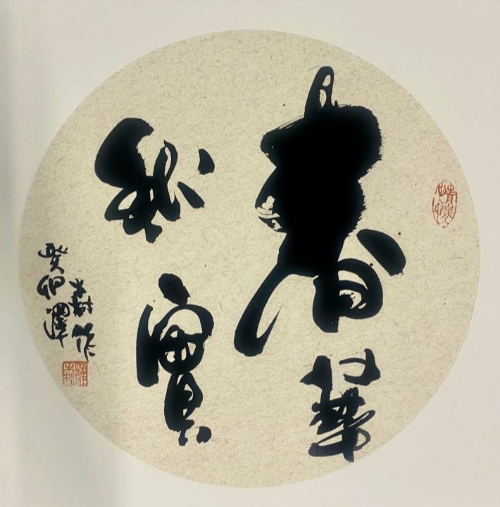 春華
秋實
癸卯澤
樹作